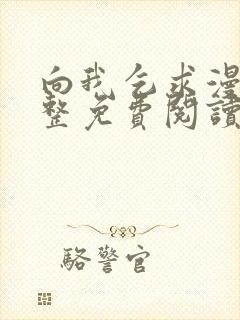 向我乞求漫
整免費閱讀
駱警官